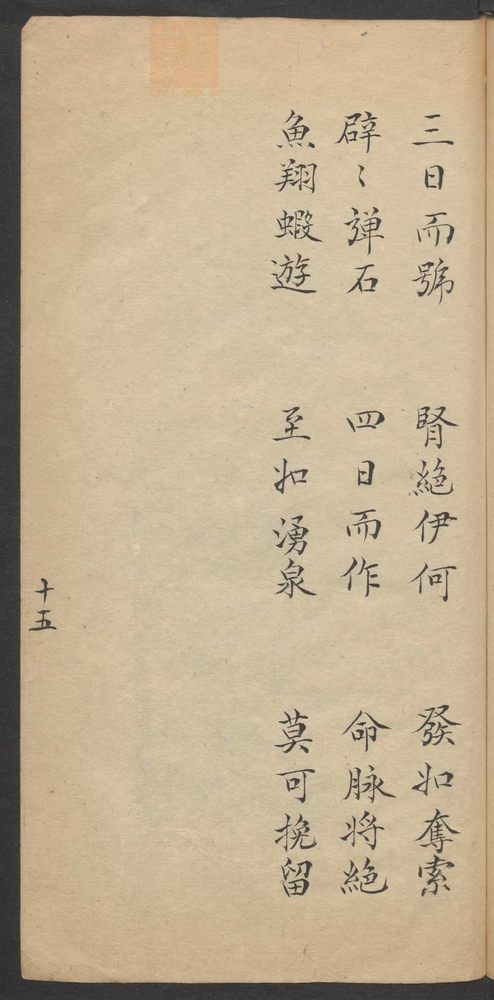 三日而號 腎絶伊何 發如奪索
辟〻弹石 四日而作 命脉将絶
魚翔蝦遊 至如湧泉 莫可挽留
十五